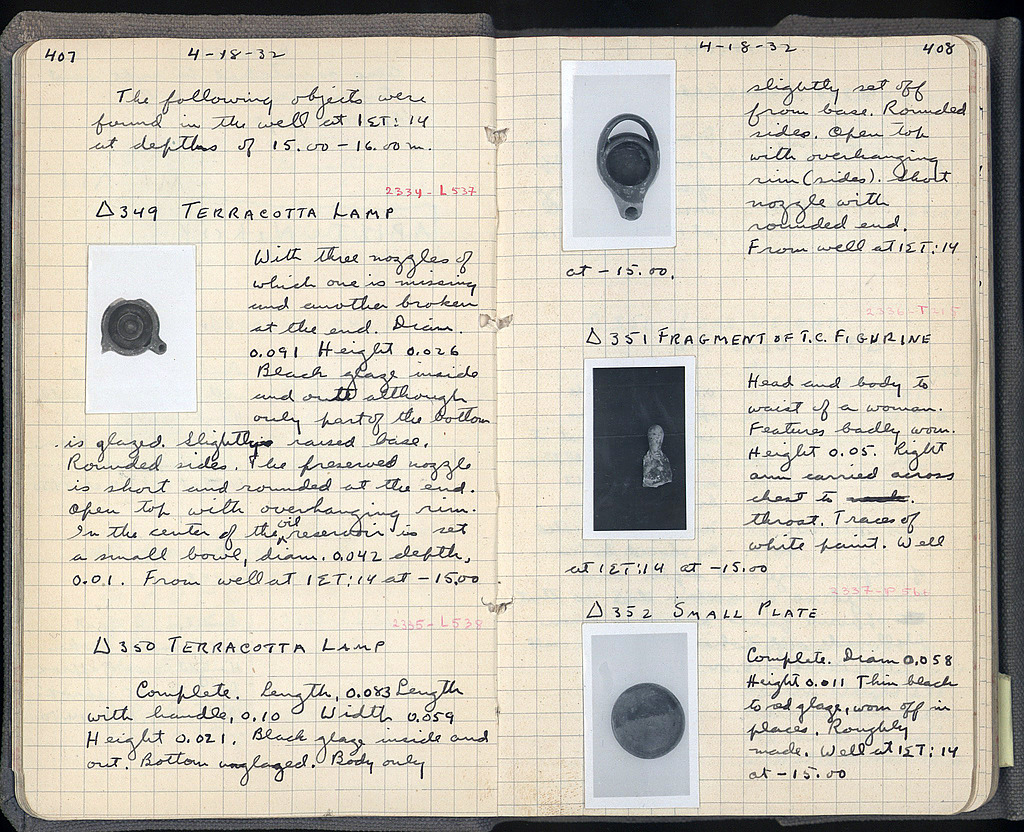 407
4-18-32
The following objects were
found in the well at 1ΣT:14
at depths of 15.00-16.00 m.
2334-L537
Δ349 TERRACOTTA LAMP
With three nozzles of
which one is missing
and another broken
at the end. Diam.
0.091 Height 0.026
Black glaze inside
and out although
only part of the bottom
is glazed. Slightly raised base.
Rounded sides. The preserved nozzle
is short and rounded at the end.
Open top with overhanging rim.
In the center of the oil reservoir is set
a small bowl, diam. 0.042 depth,
0.01. From well at 1ΣT:14 at -15.00
2335-L538
Δ350 TERRACOTTA LAMP
Complete. Length, 0.083 Length
with handle, 0.10 Width 0.059
Height 0.021. Black glaze inside and
out. Bottom unglazed. Body only
4-18-32
408
slightly set off
from base. Rounded
sides. Open top
with overhanging
rim (sides). Short
nozzle with
rounded end.
From well at 1ΣT:14
at -15.00.
Δ351 FRAGMENT OF T.C. FIGURINE
Head and body to
waist of a woman.
Features badly worn.
Height 0.05. Right
arm carried across
chest to
throat. Traces of
white paint. Well
at 1ΣT:14 at -15.00
Δ352 SMALL PLATE
Complete. Diam 0.058
Height 0.011 Thin black
to red glaze, worn off in
places. Roughly
made. Well at 1ΣT:14
at -15.00